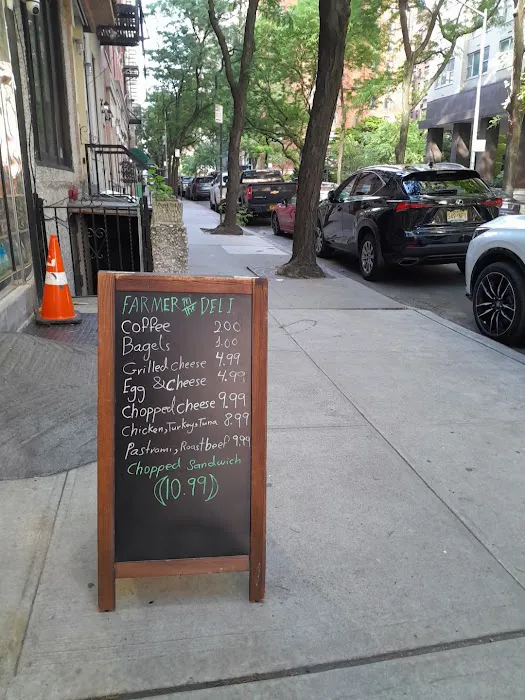 FARMER DELI
Coffee 2.00
Bagels 1.00
Grilled cheese 4.99
Egg & cheese 4.99
Chopped cheese 9.99
Chicken, Turkey, Tuna 8.99
Pastrami, Roastbeef 9.99
Chopped Sandwich
(10.99)